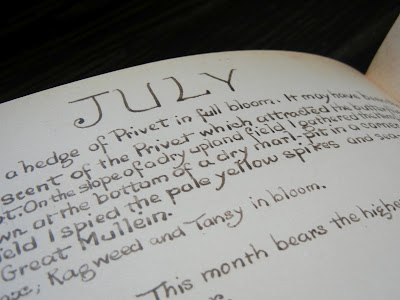 JULY
a hedge of Privet in full bloom. It may have been
scent of the Privet which attracted the
On the slope of a dry upland field I gathered the
at the bottom of a dry marl-pit in a corner
field I spied the pale yellow spikes and
Great Mullein.
Ragweed and Tansy in bloom.
This month bears the highest